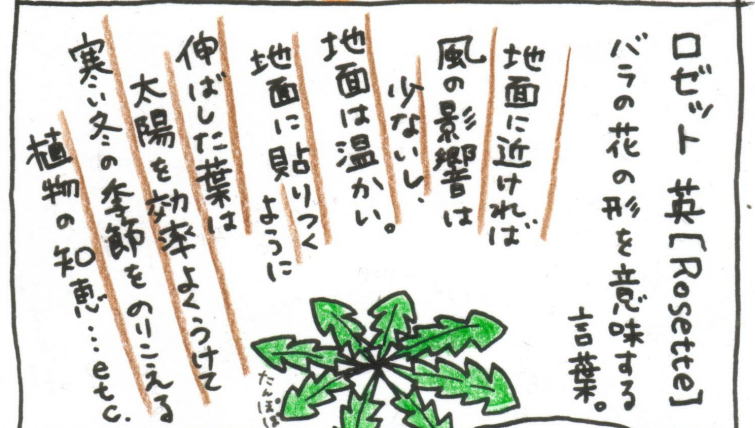 ロゼット 英[Rosette]
バラの花の形を意味する
言葉。
地面に近ければ
風の影響は
少ないし、
地面は温かい。
地面に貼りつく
ように
伸ばした葉は
太陽を効率よくうけて
寒い冬の季節をのりこえる
植物の知恵…etc.
たんぽぽ